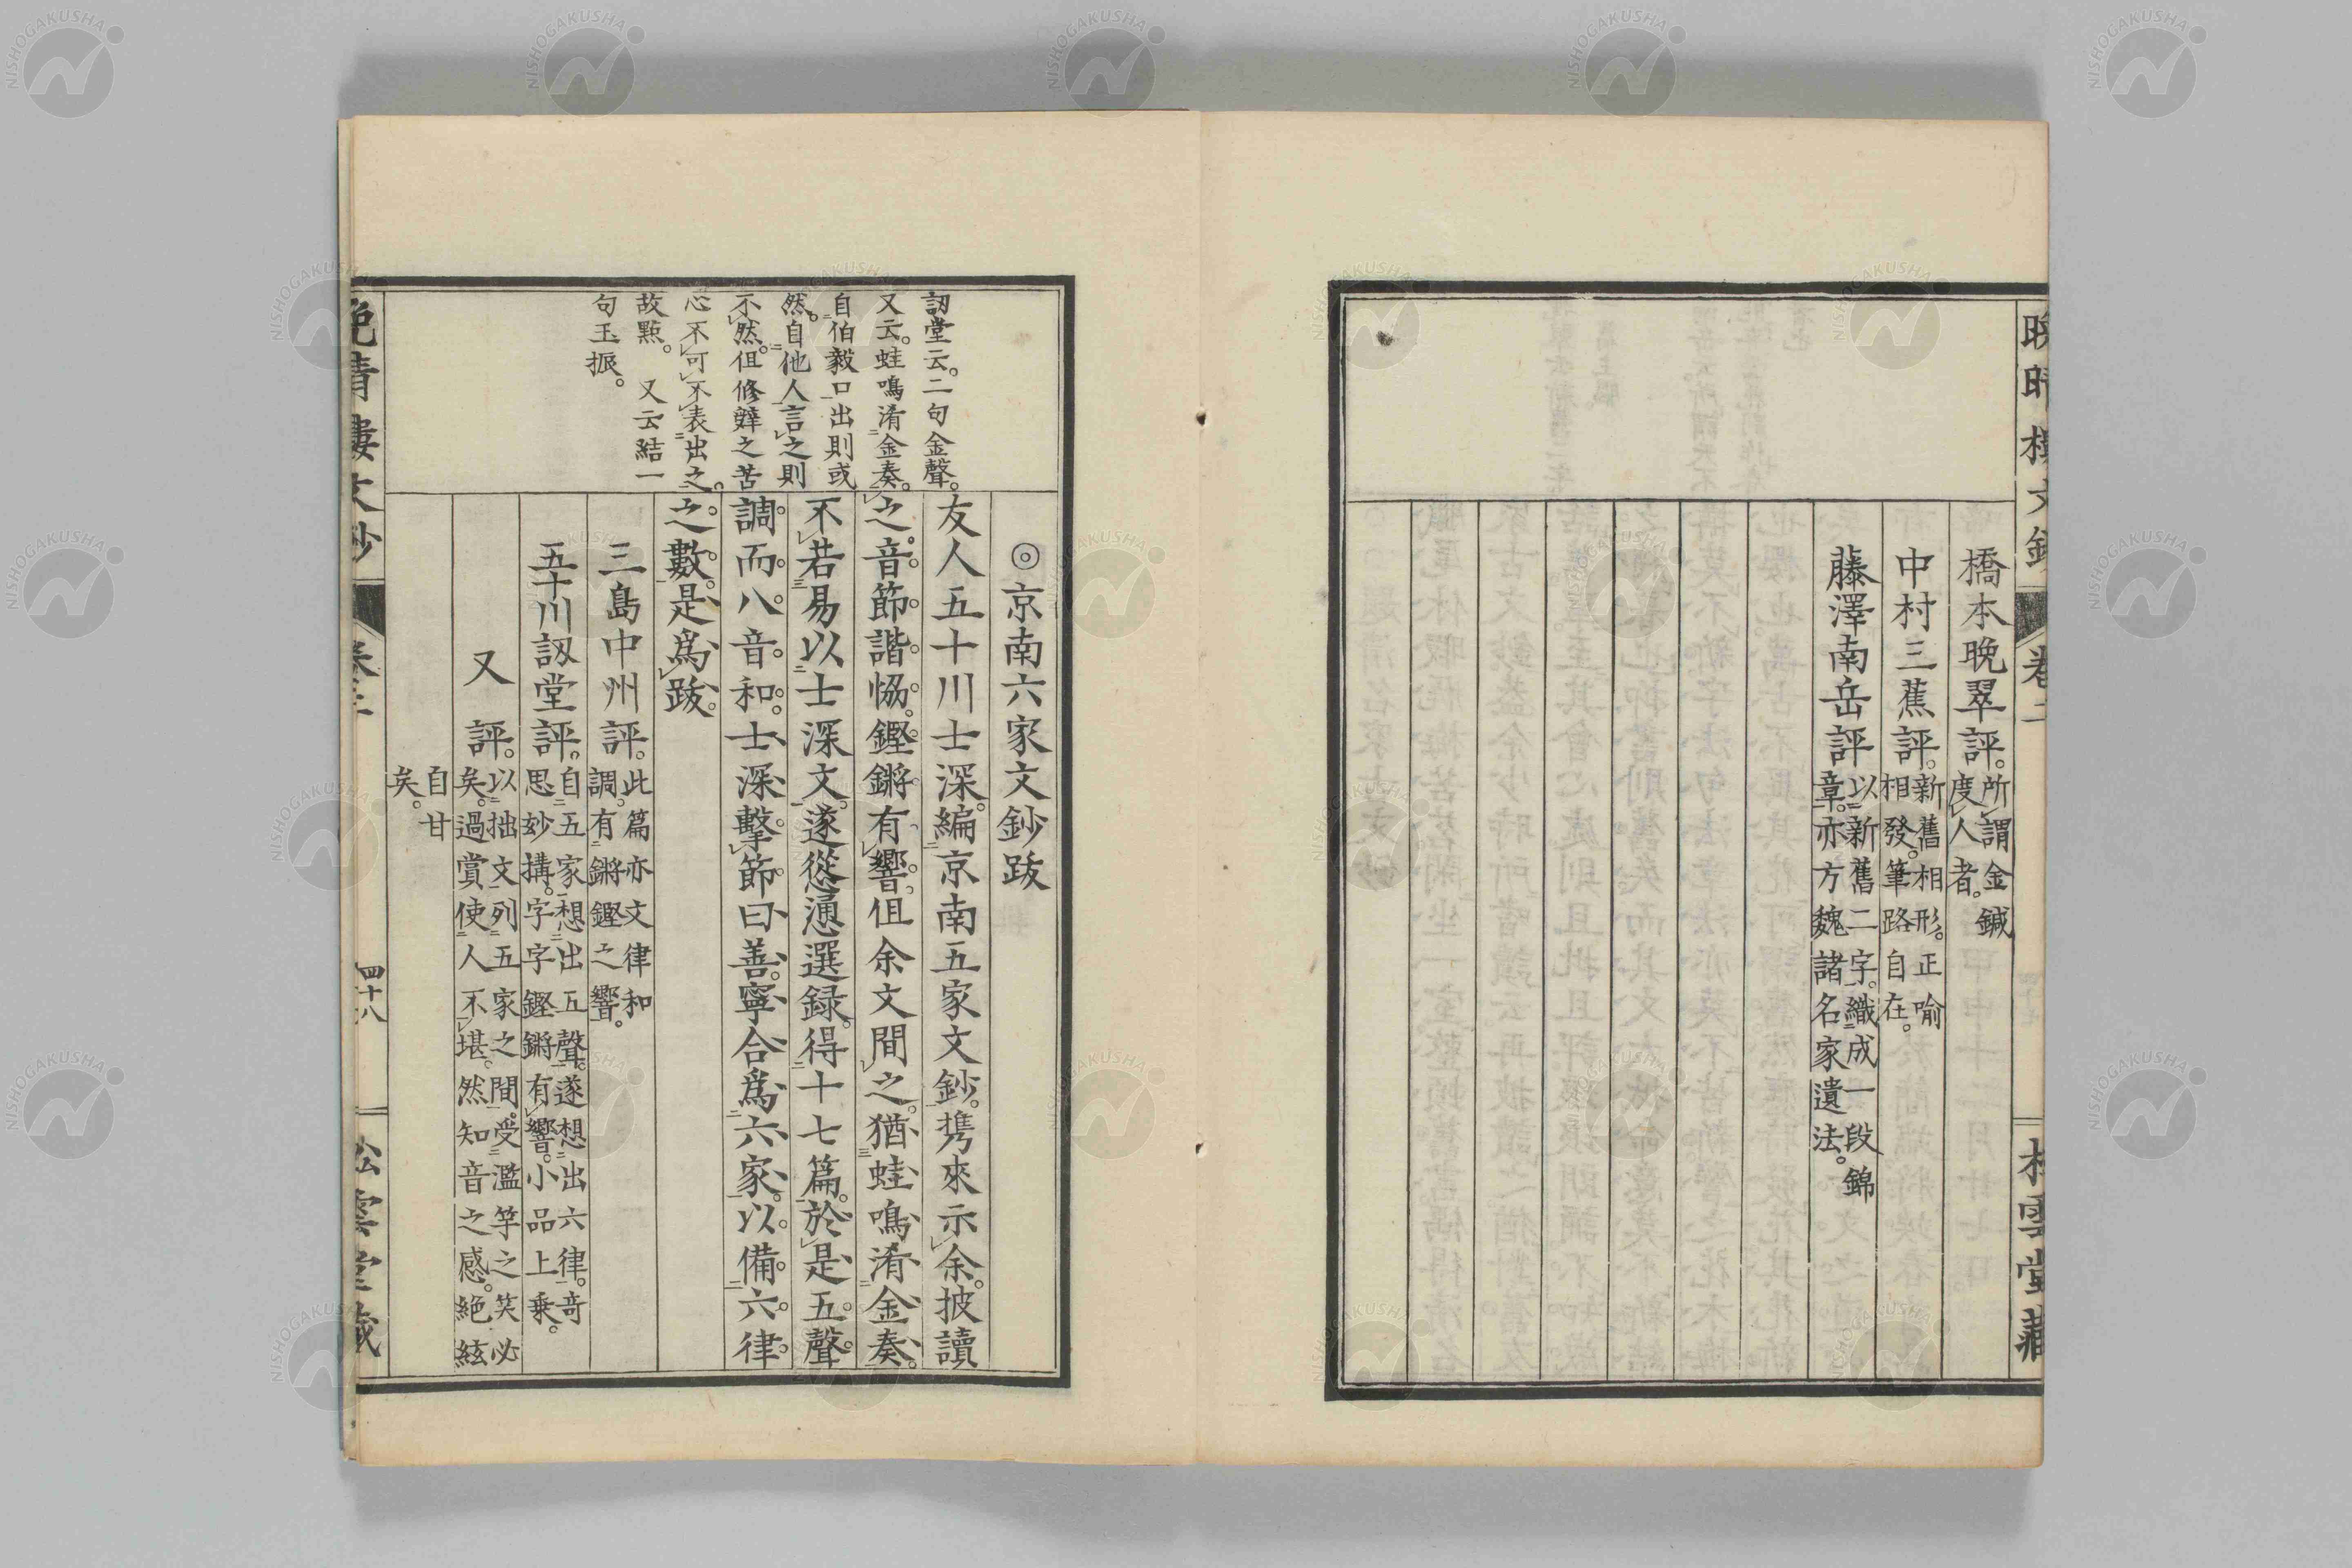 橋本晚翠評。所謂金鍼
度人者。
中村三蕉評。新舊相形。正喻
相發。筆路自在。
藤澤南岳評以新舊二字。織成一段錦
章。亦方魏諸名家遺法。
松雲堂藏
◎京南六家文鈔跋
友人五十川士深。編京南五家文鈔。携來示余。披讀
之。音節諧恊。鏗鏘有響。但余文間之。猶蛙鳴淆金奏。
不若易以士深文。遂慫慂選録。得十七篇。於是五聲
調而八音和。士深擊節曰。善。寧合爲六家。以備六律
之數。是爲跋。
三島中州評。此篇亦文律和
調。有鏘鏗之響。
五十川訒堂評。自五家想出五聲。遂想出六律。奇
思妙搆。字字鏗鏘有響。小品上乗。
又評。以拙文列五家之間。受濫竽之笑必
矣。過賞使人不堪。然知音之感。絶絃
自甘
矣。
訒堂云。二句金聲。
又云。蛙鳴淆金奏。
自伯毅口出則或
然。自他人言之則
不然。但修辭之苦
心不可不表出之。
故㸃。 又云結一
句玉振。
晚晴樓文鈔
卷二
四十八
松雲堂藏
NISHOGAKUSHA